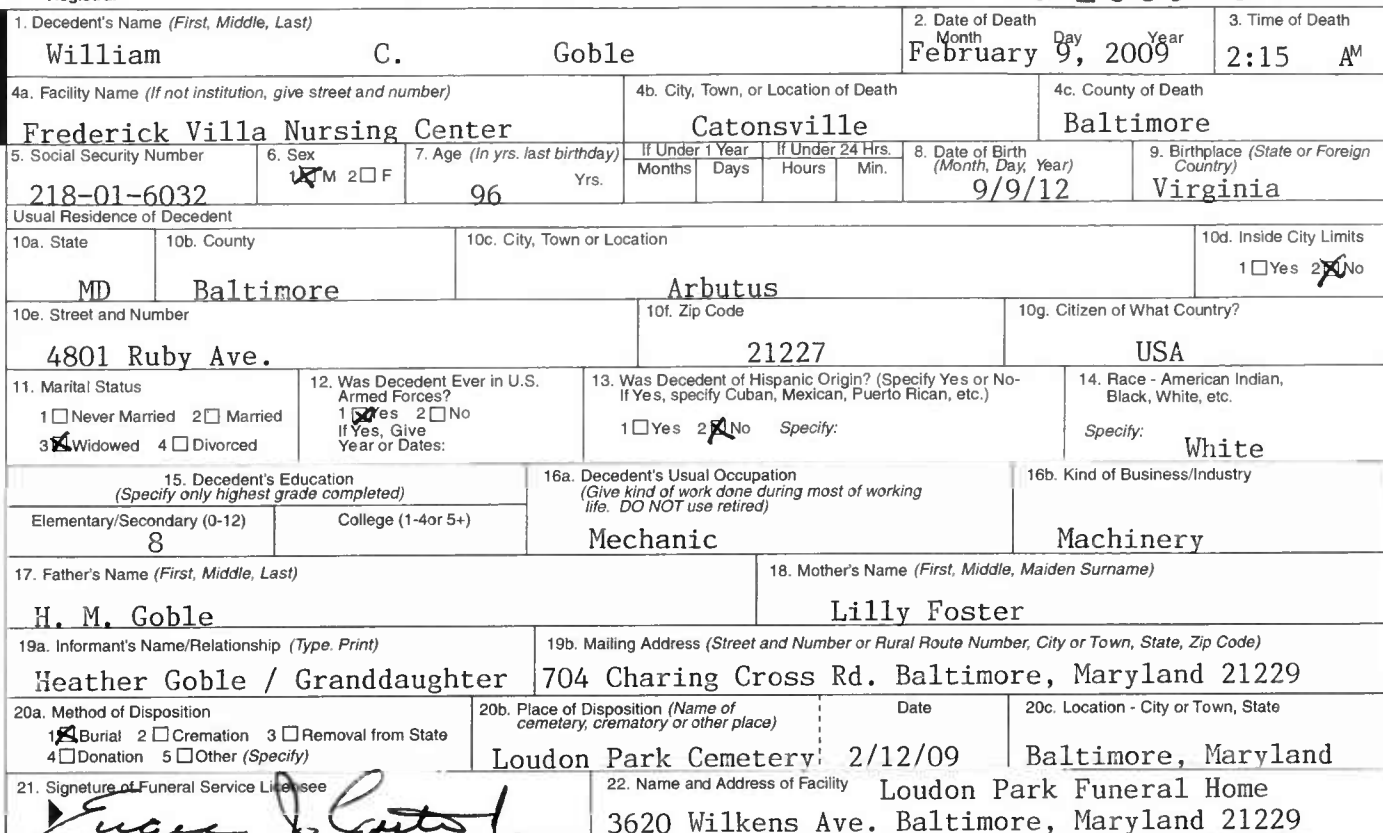 1. Decedent's Name (First, Middle, Last)
William C. Goble
2. Date of Death
Month Day Year
February 9, 2009
3. Time of Death
2:15 AM
4a. Facility Name (If not institution, give street and number)
Frederick Villa Nursing Center
4b. City, Town, or Location of Death
Catonsville
4c. County of Death
Baltimore
5. Social Security Number
218-01-6032
6. Sex
1 M 2 F
7. Age (In yrs. last birthday)
96 Yrs.
If Under 1 Year
Months Days
If Under 24 Hrs.
Hours Min.
8. Date of Birth
(Month, Day, Year)
9/9/12
9. Birthplace (State or Foreign
Country)
Virginia
Usual Residence of Decedent
10a. State
MD
10b. County
Baltimore
10c. City, Town or Location
Arbutus
10d. Inside City Limits
1 Yes 2 No
10e. Street and Number
4801 Ruby Ave.
10f. Zip Code
21227
10g. Citizen of What Country?
USA
11. Marital Status
1 Never Married 2 Married
3 Widowed 4 Divorced
12. Was Decedent Ever in U.S.
Armed Forces?
1 Yes 2 No
If Yes, Give
Year or Dates:
13. Was Decedent of Hispanic Origin? (Specify Yes or No-
If Yes, specify Cuban, Mexican, Puerto Rican, etc.)
1 Yes 2 No Specify:
14. Race - American Indian,
Black, White, etc.
Specify:
White
15. Decedent's Education
(Specify only highest grade completed)
Elementary/Secondary (0-12)
8
College (1-4or 5+)
16a. Decedent's Usual Occupation
(Give kind of work done during most of working
life. DO NOT use retired)
Mechanic
16b. Kind of Business/Industry
Machinery
17. Father's Name (First, Middle, Last)
H. M. Goble
18. Mother's Name (First, Middle, Maiden Surname)
Lilly Foster
19a. Informant's Name/Relationship (Type. Print)
Heather Goble / Granddaughter
19b. Mailing Address (Street and Number or Rural Route Number, City or Town, State, Zip Code)
704 Charing Cross Rd. Baltimore, Maryland 21229
20a. Method of Disposition
1 Burial 2 Cremation 3 Removal from State
4 Donation 5 Other (Specify)
20b. Place of Disposition (Name of
cemetery, crematory or other place)
Loudon Park Cemetery
Date
2/12/09
20c. Location - City or Town, State
Baltimore, Maryland
21. Signeture of Funeral Service Licensee
22. Name and Address of Facility
Loudon Park Funeral Home
3620 Wilkens Ave. Baltimore, Maryland 21229